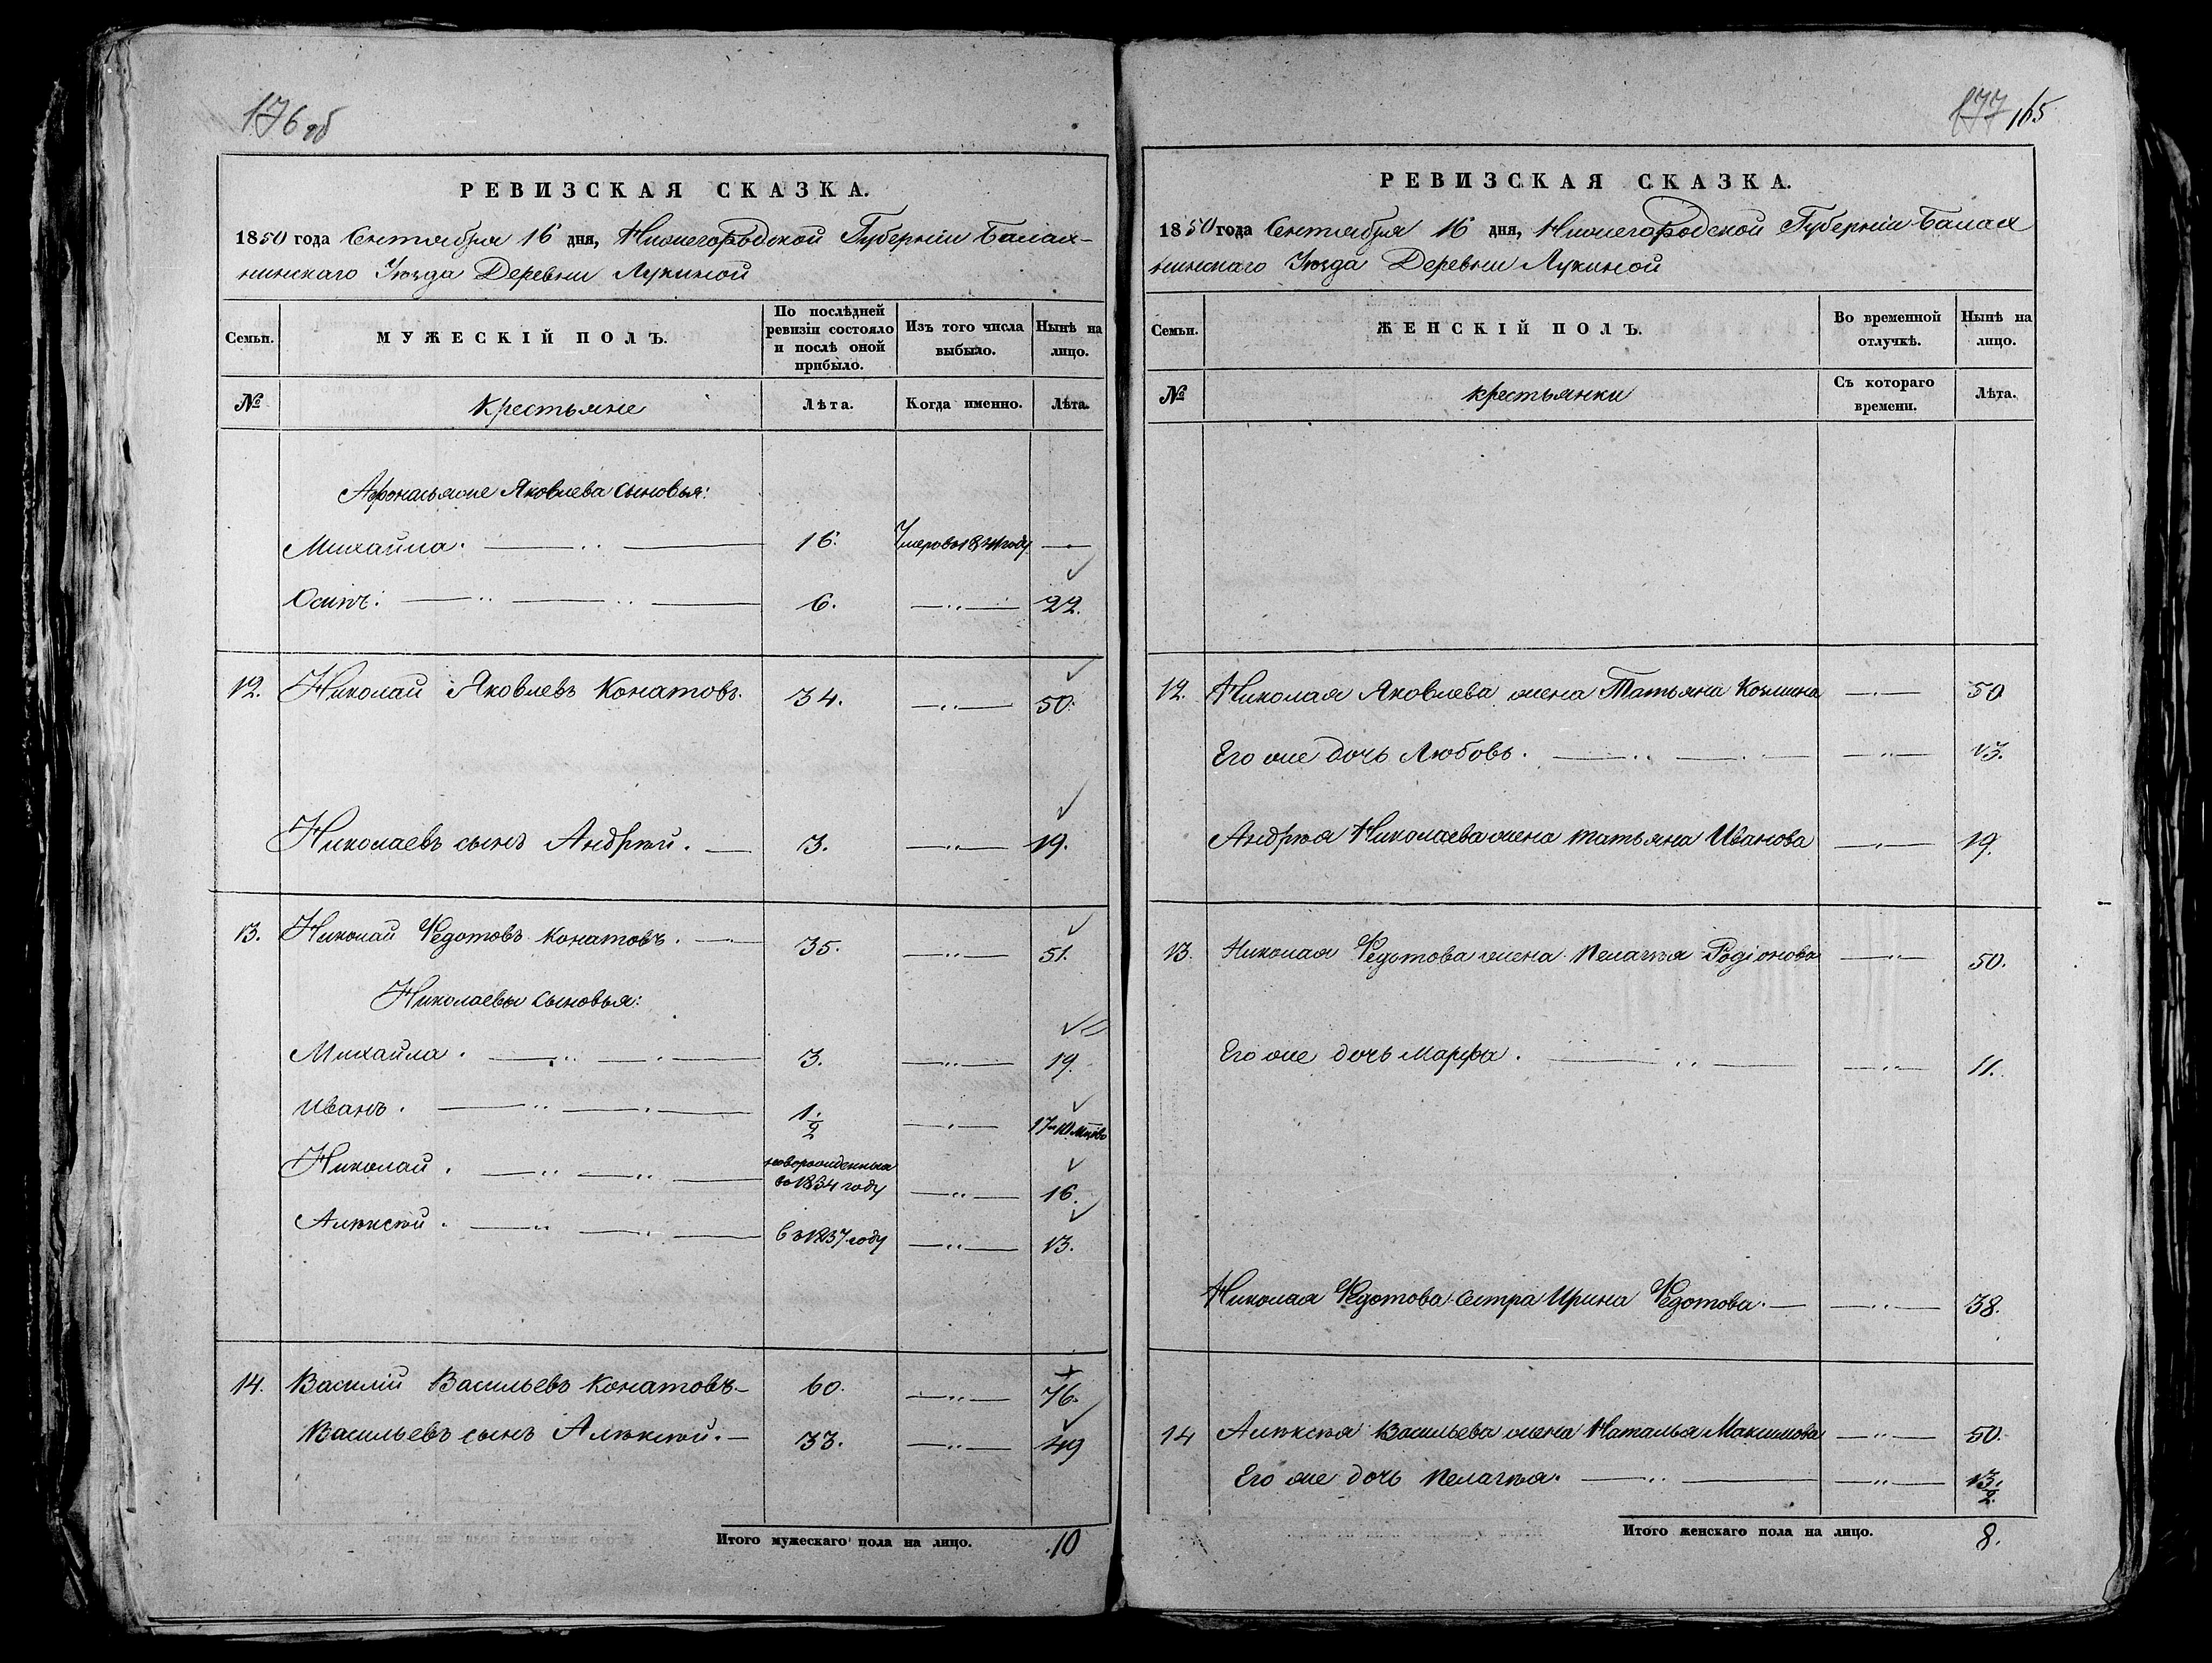 176 об
РЕВИЗСКАЯ СКАЗКА.
1850 года Сентября 16 дня, Нижегородской Губернiи Балах-
нинскаго Уѣзда Деревни Лукиной
Семьи.
МУЖЕСКІЙ ПОЛЪ.
По послѣдней ревизіи состояло и послѣ оной прибыло.
Изъ того числа выбыло.
Нынѣ на лицо.
№ Крестьяне Лѣта. Когда именно. Лѣта.
Афонасьяже Яковлева сыновья:
Михайла. 16. Умеръ въ 1841 году —
Осипъ. 6. 22.
12. Николай Яковлевъ Конатовъ. 34. 50.
Николаевъ сынъ Андрѣй. 3. 19.
13. Николай Ѳедотовъ Конатовъ. 35. 51.
Николаевы сыновья:
Михайла. 3. 19.
Иванъ. 1/2 17 и 10 мцовъ
Николай. новорожденныя въ 1834 году 16.
Алѣксѣй. въ 1837 году 13.
14. Василій Васильевъ Конатовъ 60. 76.
Васильевъ сынъ Алѣксѣй. 33. 49
Итого мужескаго пола на лицо. 10
177 165
РЕВИЗСКАЯ СКАЗКА.
1850 года Сентября 16 дня, Нижегородской Губернiи Балах
нинскаго Уѣзда Деревни Лукиной
Семьи.
ЖЕНСКІЙ ПОЛЪ.
Во временной отлучкѣ.
Нынѣ на лицо.
№ крестьянки Съ котораго времени. Лѣта.
12. Николая Яковлева жена Татьяна Козмина 50
Его же дочь Любовь. 13.
Андрѣя Николаева жена Татьяна Иванова 19.
13. Николая Ѳедотова жена Пелагѣя Родіонова 50.
Его же дочь Марфа. 11.
Николая Ѳедотова сестра Ирина Ѳедотова. 38.
14 Алѣксѣя Васильева жена Наталья Максимова 50.
Его же дочь Пелагѣя. 13/2.
Итого женскаго пола на лицо. 8.